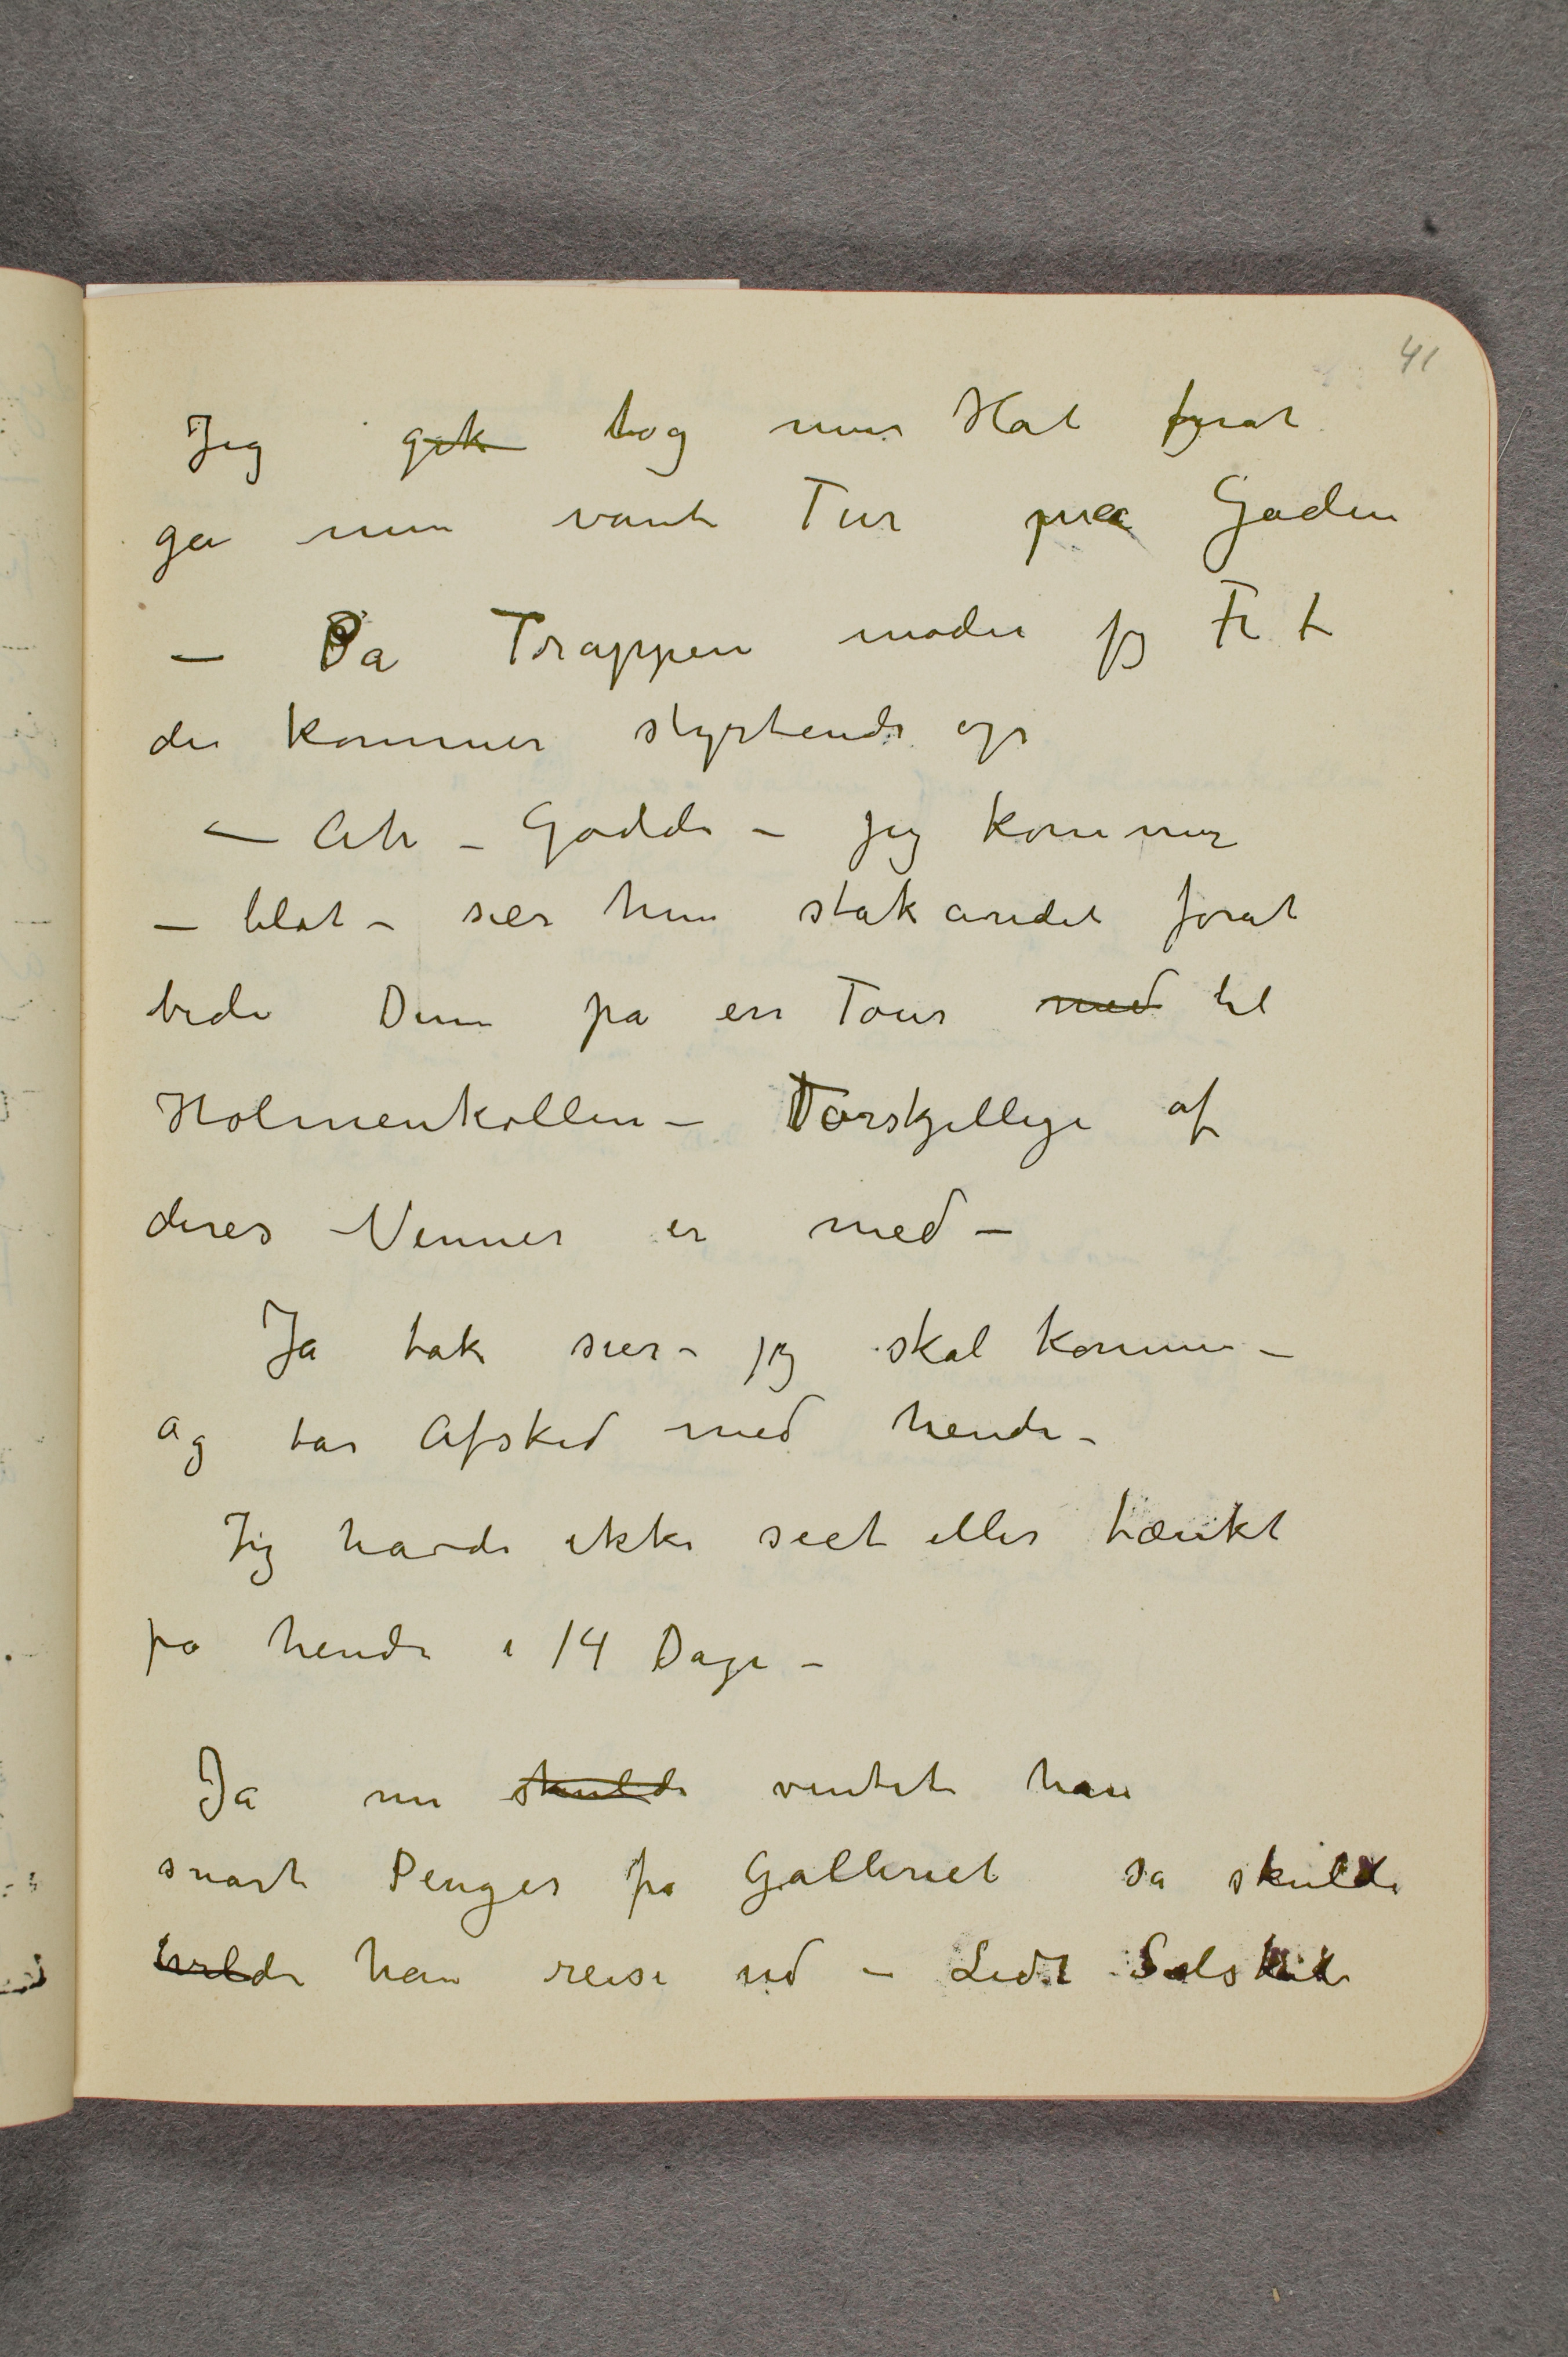 41
Jeg gik tog min Hat forat
ga min vante Tur paa Gaden
– Pa Trappen møder jeg Fr L
der kommer styrtende op
– Ah – Goddi – jeg kommer
– blot – sier hun stakåndet forat
bede Dem pa en Tour med til
Holmenkollen – Forskjellige af
deres Venner er med –
Ja tak sier – jeg skal komme –
og tar Afsked med hende –
Jeg havde ikke seet eller tænkt
på hende i 14 Dage –
Ja nu skulde ventet han
snart Penger fra Galleriet så skulde
vilde han reise ud – Lidt Solskin